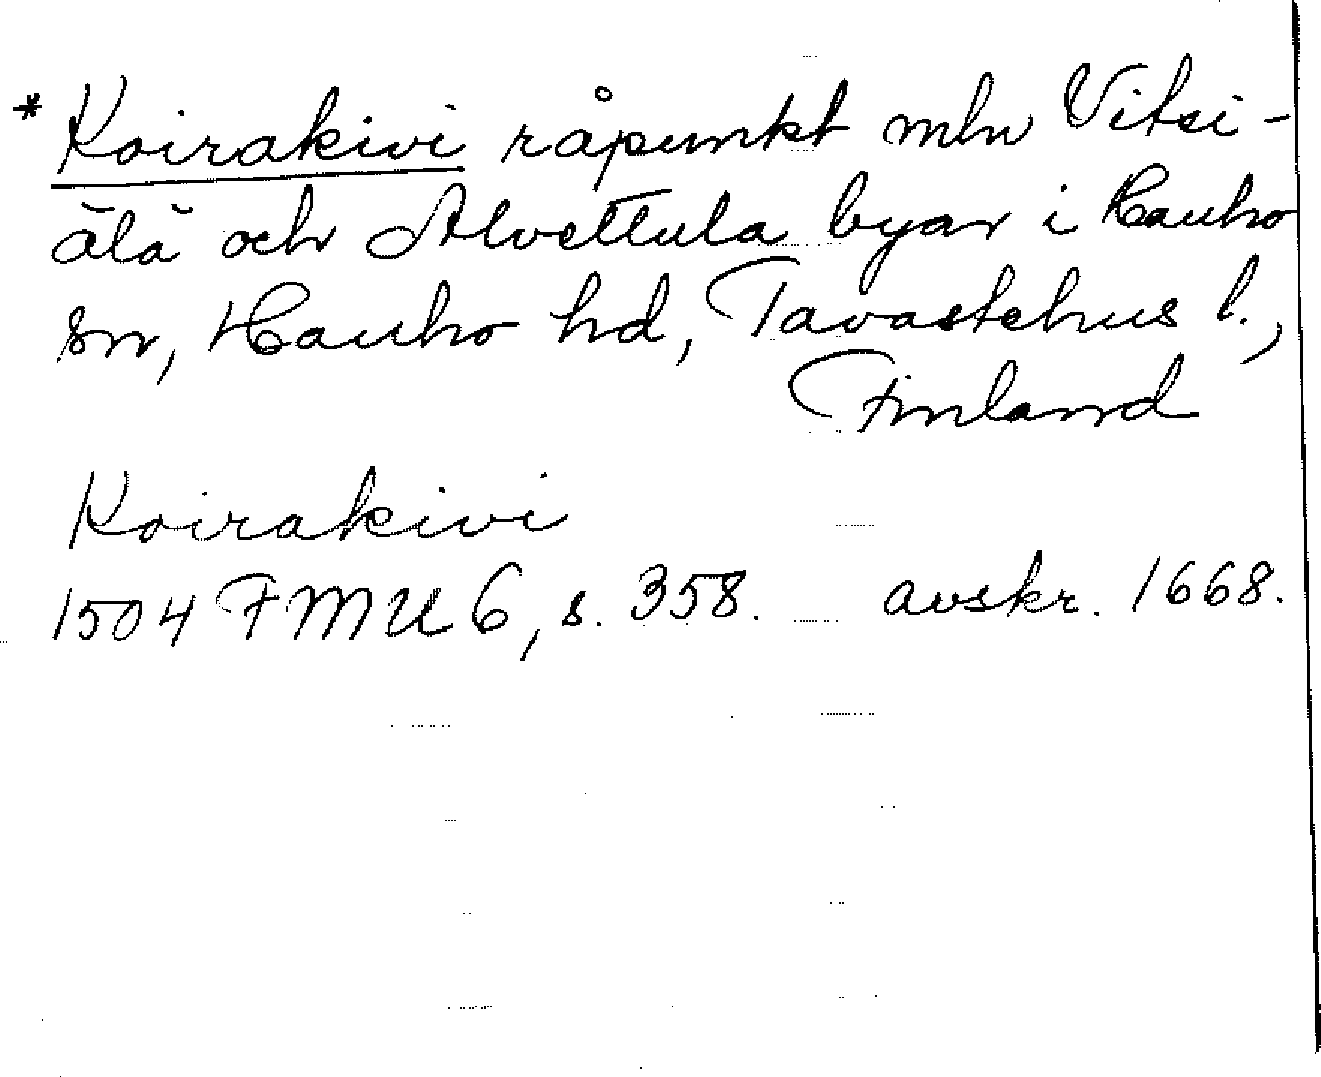 * Koirakivi råpunkt mln Vitsi-
älä och Alvettula byar i Hauho
sn, Hauho hd, Tavastehus l.,
Finland
Koirakivi
1504 FMU 6, s. 358. avskr. 1668.